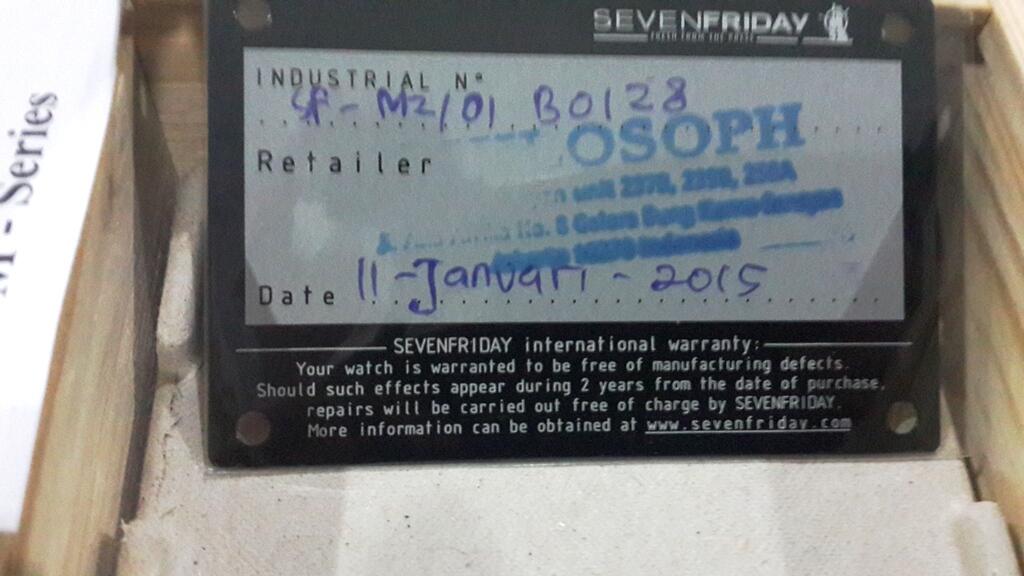 SEVENFRIDAY
INDUSTRIAL Nº
SF-M2/01 B0128
OSOPH
Retailer
Date 11-Januari-2015
SEVENFRIDAY international warranty:
Your watch is warranted to be free of manufacturing defects.
Should such effects appear during 2 years from the date of purchase,
repairs will be carried out free of charge by SEVENFRIDAY.
More information can be obtained at www.sevenfriday.com
- Series